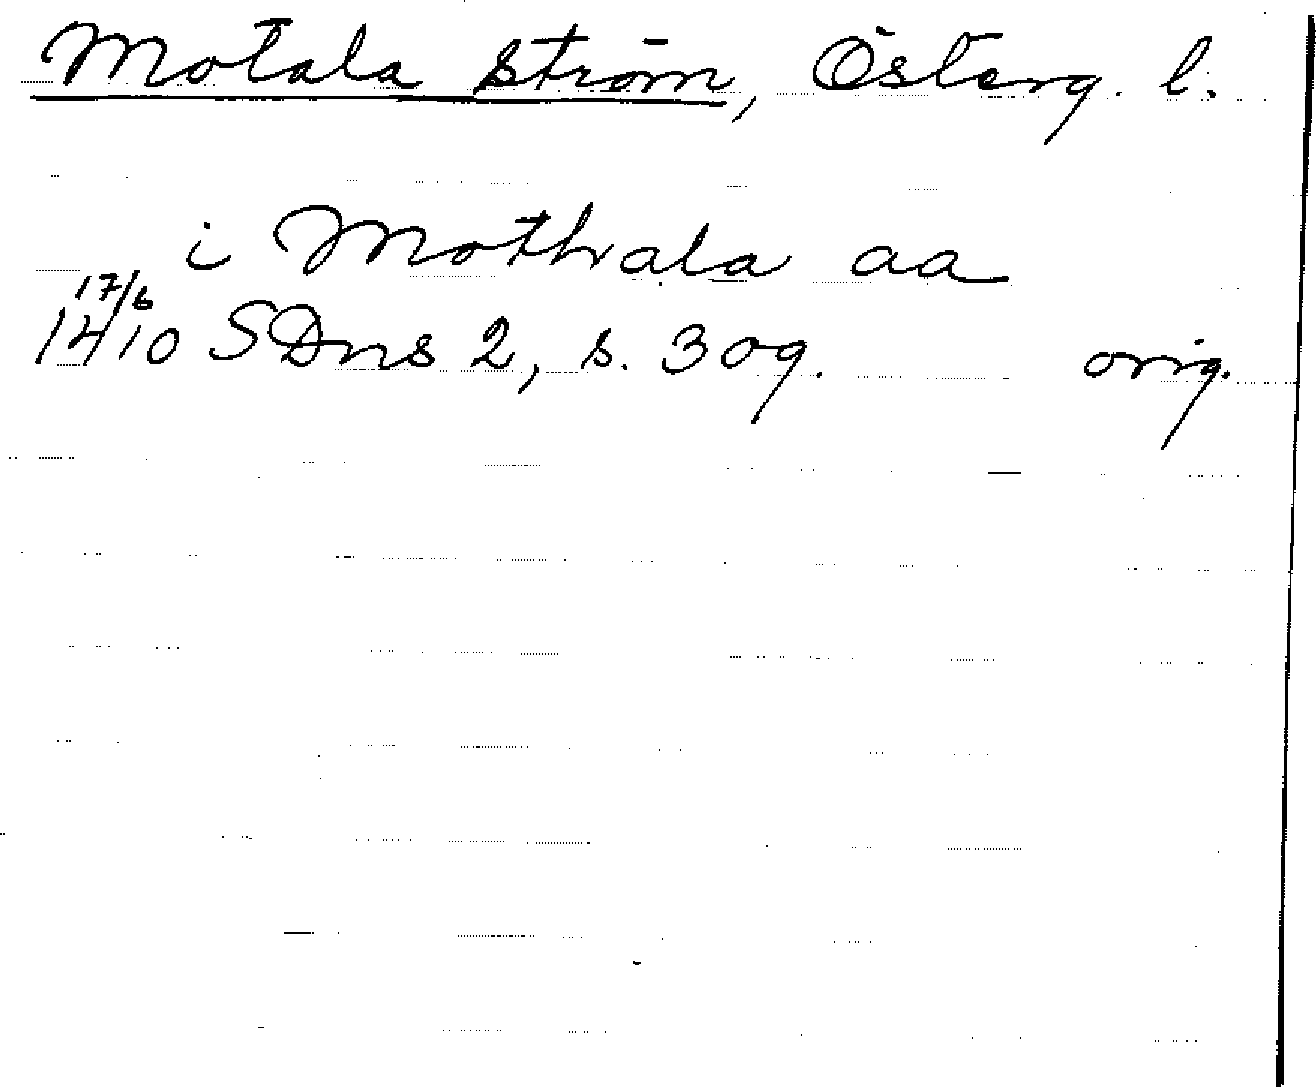 Motala ström, Österg. l.
i Mothala aa
17/6
1410 SDns 2, s. 309. orig.